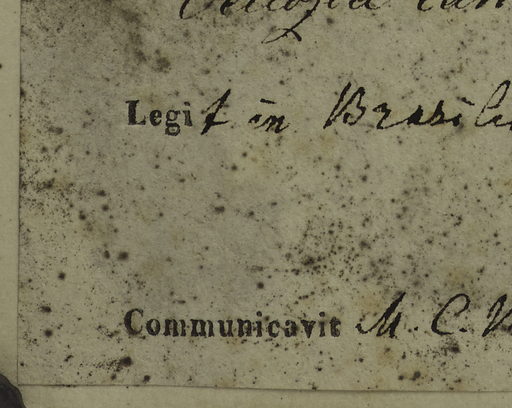 Legit in Brasili
Communicavit M. C. V